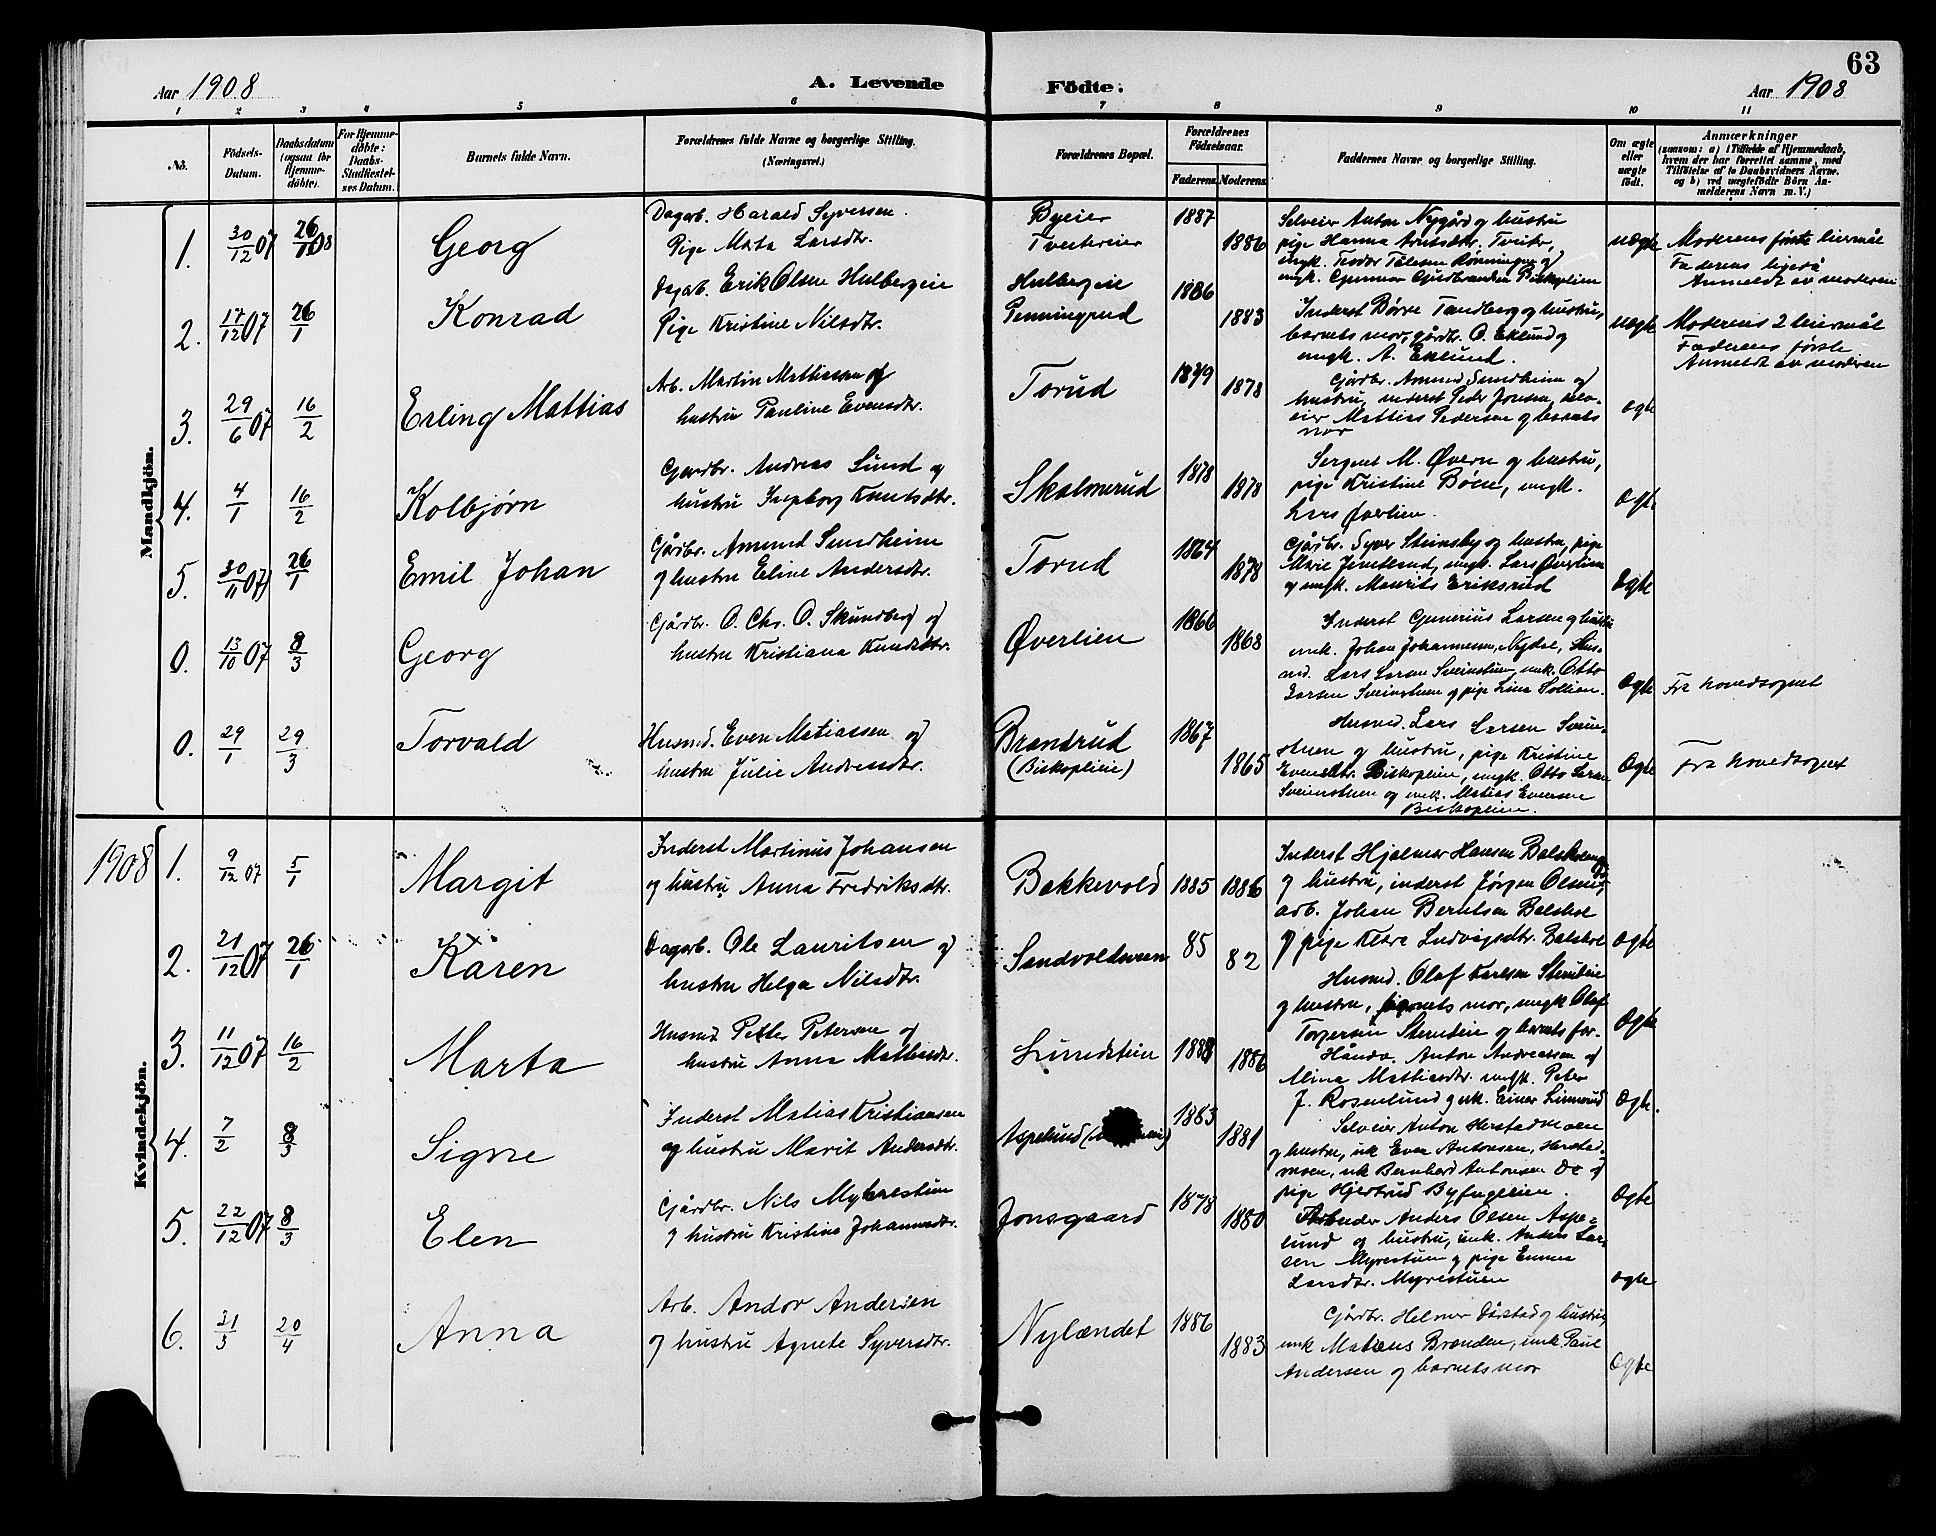 63
Aar 1908
A. Levende
Födte.
Aar 1908
1 2 3 4 5 6 7 8 9 10 11
No.
Födsels-
Datum.
Daabsdatum
(ogsaa for
Hjemme-
döbte).
For Hjemme-
döbte:
Daabs-
Stadfæstel-
ses Datum.
Barnets fulde Navn.
Forældrenes fulde Navne og borgerlige Stilling.
(Næringsvei.)
Forældrenes Bopæl.
Forældrenes
Födselsaar.
Faderens Moderens
Faddernes Navne og borgerlige Stilling.
Om ægte
eller
uægte
födt.
Anmærkninger
(saasom: a) i Tilfælde af Hjemmedaab,
hvem der har forrettet samme, med
Tilföielse af to Daabsvidners Navne.
og b) ved uægtefödte Börn An-
melderens Navn m. V.)
Mandkjön.
1. 30/12 07 26/1 08 Georg
Dagarb. Harald Syversen
Pige Marta Larsdtr.
Byeier
Tveitereier
1887 1886
Selveier Anton Nygård og hustru
pige Hanna
uægte
Moderens første leiermål
Faderens ligeså
Anmeldt av moderen
2. 17/12 07 26/1 Konrad
Dagarb. Erik Olsen Hulbergeie
Pige Kristine Nilsdtr.
Hulbergeie
Penningrud
1886 1883
Inderst Børre Tandberg og hustru,
barnets mor, gårdbr. O. Eklund og
ungk. A. Eklund.
uægte
Moderens 2 leiermål
Faderens første
Anmeldt av moderen
3. 29/6 07 16/2 Erling Mattias
Arb. Martin Mattiassen og
hustru Pauline Evensdtr.
Torud
1879 1878
Gårdbr. Amund Sundheim og
hustru, inderst Peder Jonsen, selv-
eier Mattias Pedersen og barnets
mor
ægte
4. 4/1 16/2 Kolbjørn
Gardbr. Andreas Lund og
hustru Ingeborg Knutsdtr.
Skalmerud
1878 1878
Sergeant M. Øvern og hustru,
pige Kristine Bøen, ungk.
Lars Øverlien.
Ægte
5. 30/11 07 26/1 Emil Johan
Gårdbr. Amund Sundheim
og hustru Eline Andersdtr.
Torud
1864 1878
Gårdbr. Syver Steinsby og hustru, pige
Marie ungk. Lars Øverlien
og ungk. Maurits Eriksrud
Ægte
0. 13/10 07 8/3 Georg
Gårdbr. O. Chr. O. Skundberg og
hustru Kristiana Knudsdtr.
Øverlien
1866 1868
Inderst Gunerius Larsen og hustru
unk. Johan Johannessen, Hus-
md. Lars Larsen Sveinstuen, unk. Otto
Larsen Sveinstuen og pige Lina Sollien.
Ægte
Fra hovedsognet
0. 29/1 29/3 Torvald
Husmd. Even Matiassen og
hustru Julie Andreasdtr.
Brandrud
(Biskoplien)
1867 1865
Husmd. Lars Larsen Svein-
stuen og hustru, pige Kristine
Evensdtr. Biskoplien, ungk. Otto Larsen
Sveinstuen og unk. Matias Evensen
Biskoplien.
Ægte
Fra hovedsognet
1908
Kvindekjön.
1. 9/12 07 5/1 Margit
Inderst Martinus Johansen
og hustru Anna Fredriksdtr.
Bakkevold
1885 1886
Inderst Hjalmar Hansen
og hustru, inderst Jørgen Olsen
arb. Johan Berntsen Balskoe
og pige Ludvigsdtr. Balskoe
Ægte
2. 21/12 07 26/1 Karen
Dagarb. Ole Lauritsen og
hustru Helga Nilsdtr.
Sandvoldmoen
85 82
Husmd. Olaf Karlsen
og hustru, barnets mor, ungk Olaf
Torgersen og barnets far
Ægte
3. 11/12 07 16/2 Marta
Husmd Petter Petersen og
hustru Anna Mathisdtr.
Lundstein
1888 1886
Håndv. Anton Andreassen og
Alina Mattiasdtr. ungk. Peter
J. Rosenlund og unk. Einar
Ægte.
4. 7/2 8/3 Signe
Inderst Matias Kristiansen
og hustru Marit Andersdtr.
Aspelund
1883 1881
Selveier Anton Herstadmoen
og hustru, unk Even Antonsen, Herstad-
moen, unk Bernhard Antonsen Do og
pige Hjertrud Byfuglien.
Ægte
5. 22/12 07 8/3 Elen
Gårdbr. Nils Myhrestuen
og hustru Kristine Johannesdtr.
Jonsgaard
1878 1880
Arbeider Anders Olsen Aspe-
lund og hustru, unk. Anders Lar-
sen Myrestuen og pige Emma
Larsdtr. Myrestuen
ægte
6. 31/3 20/4 Anna
Arb. Andor Andersen
og hustru Agnete Syversdtr.
Nylændet
1886 1883
Gårdbr. Helmer og hustru,
unk Mataus Brænden, unk Paul
Andersen og barnets mor
Ægte